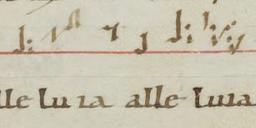 lle lu ia alle luia